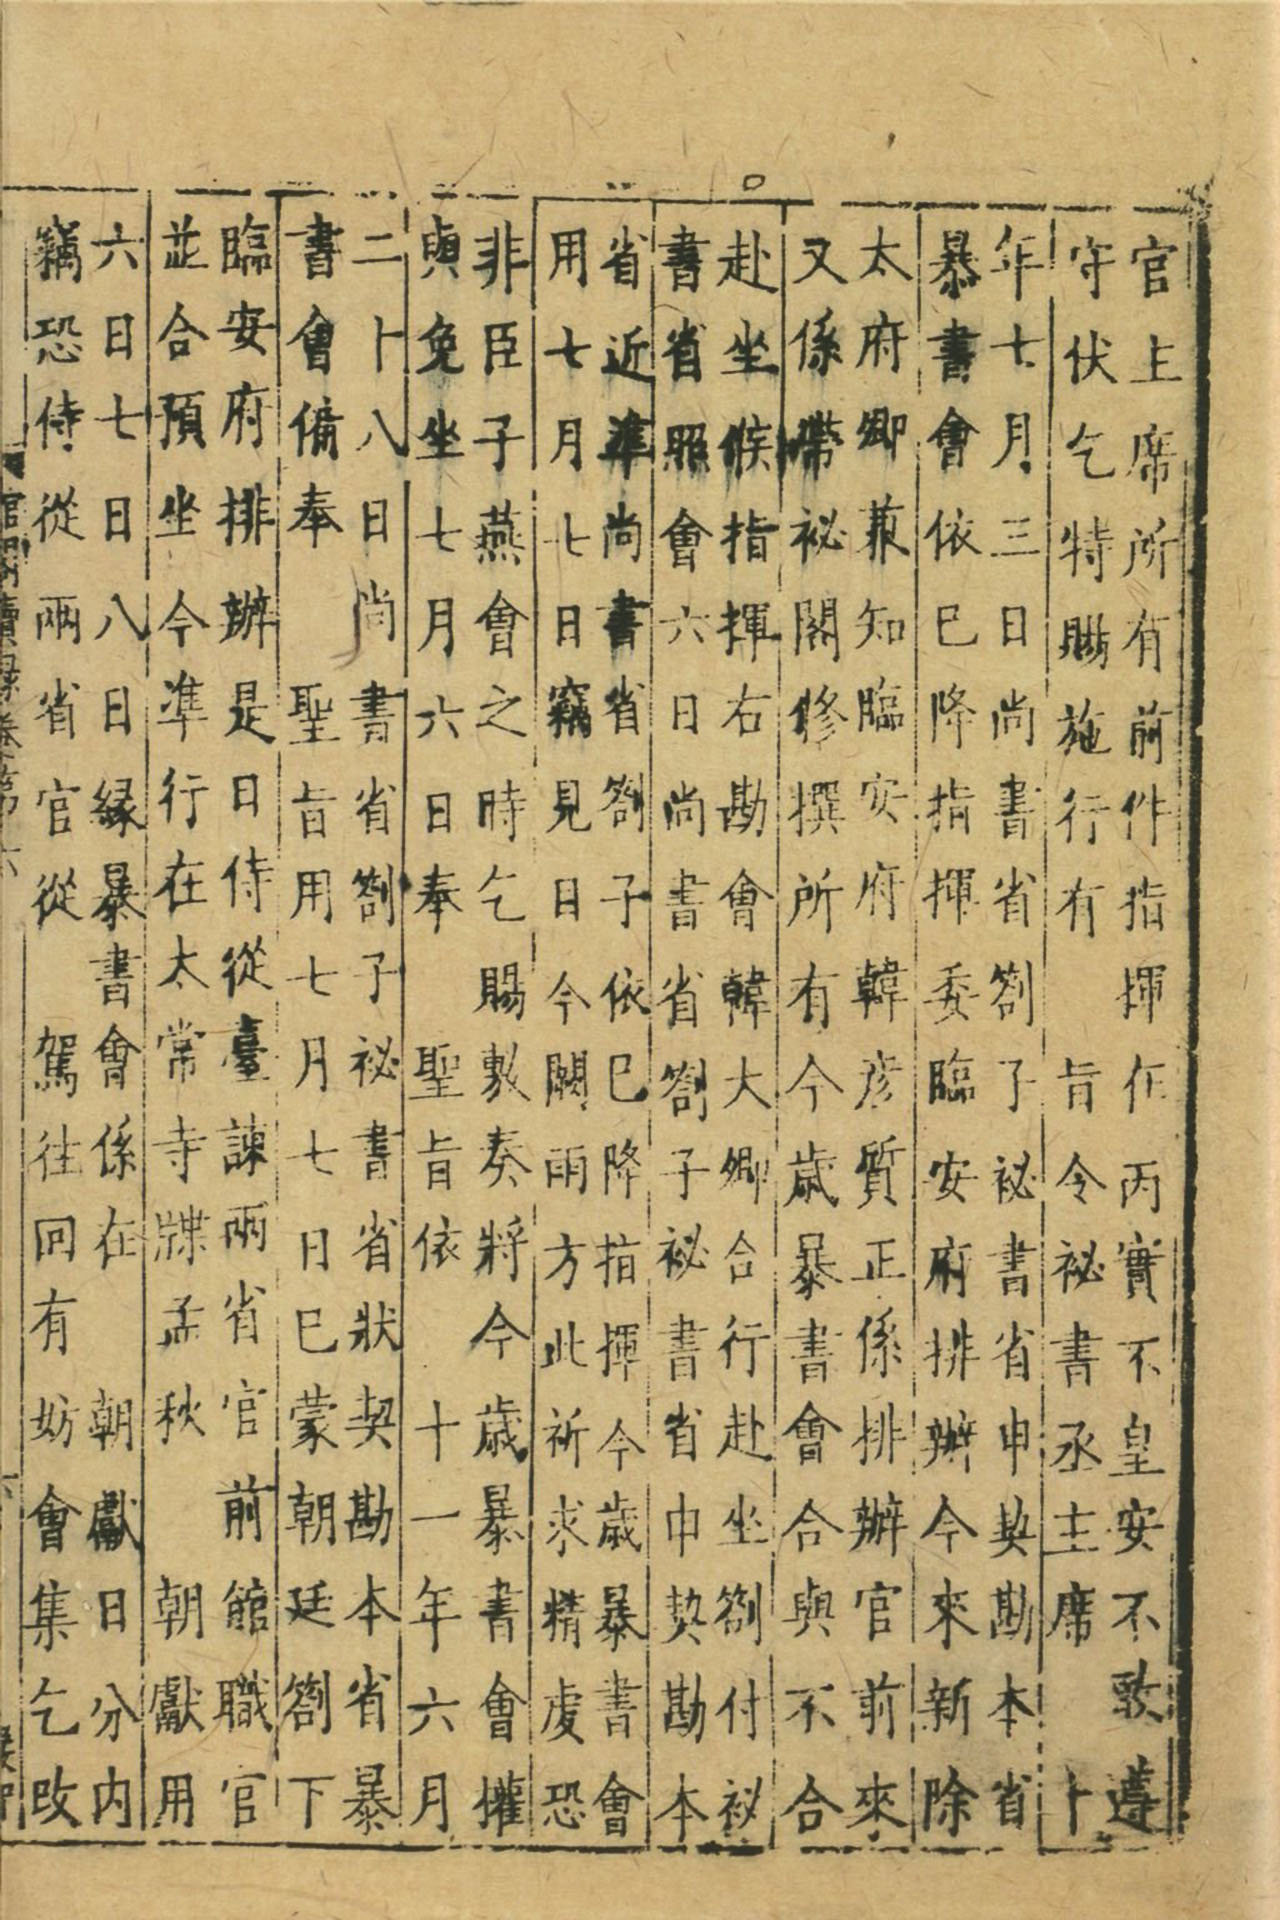 官上席所有前件指揮在丙實不皇安不敢遵
守伏乞特賜施行有　旨令祕書丞主席　十
年七月三日尚書省劄子祕書省申契勘本省
暴書會依已降指揮委臨安府排辦今來新除
太府卿兼知臨安府韓彦質正係排辦官前來
又係帶祕閣修撰所有今歳暴書會合與不合
赴坐候指揮右勘會韓大卿合行赴坐劄付祕
書省照會六日尚書省劄子祕書省申契勘本
省近準尚書省劄子依已降指揮今歳暴書會
用七月七日竊見日今闕雨方此祈求精虔恐
非臣子燕會之時乞賜敷奏將今歳暴書會權
與免坐七月六日奉　聖旨依　十一年六月
二十八日尚書省劄子祕書省狀契勘本省暴
書會備奉　聖旨用七月七日已蒙朝廷劄下
臨安府排辦是日侍從臺諫兩省官前館職官
並合預坐今準行在太常寺牒孟秋　朝獻用
六日七日八日縁暴書會係在　朝獻日分内
竊恐侍從兩省官從　駕往回有妨會集乞改